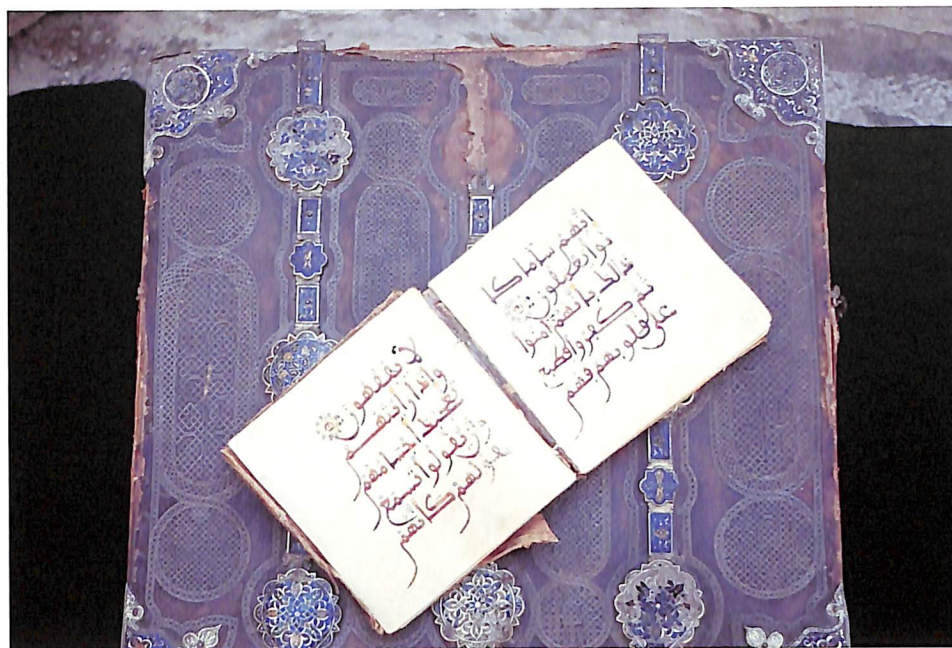 انهم ساء ما كا
نوا يعملون
ذلك بانهم امنوا
ثم كفروا فطبع
على قلوبهم فهم
لا يفقهون
واذا رايتهم
تعجبك اجسامهم
وان يقولوا تسمع
لقولهم كانهم